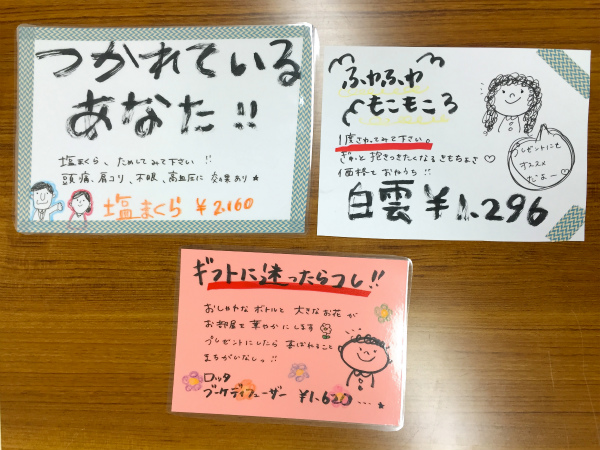 つかれている
あなた!!
塩まくら、ためしてみて下さい!!
頭痛、肩コリ、不眠、高血圧に 効果あり★
塩まくら ¥2,160
ふわふわ
もこもこ
1度さわってみて下さい。
ぎゅっと抱きつきたくなるきもちよさ♡
価格も おやつち!!
白雲 ¥1,296
プレゼントにも
オススメ
だよー♡
ギフトに迷ったらコレ!!
おしゃれな ボトルと 大きなお花が
お部屋を 華やかにします
プレゼントにしたら 喜ばれること
まちがいなしっ!!
ロッタ
ブーケディフューザー ¥1,620....★